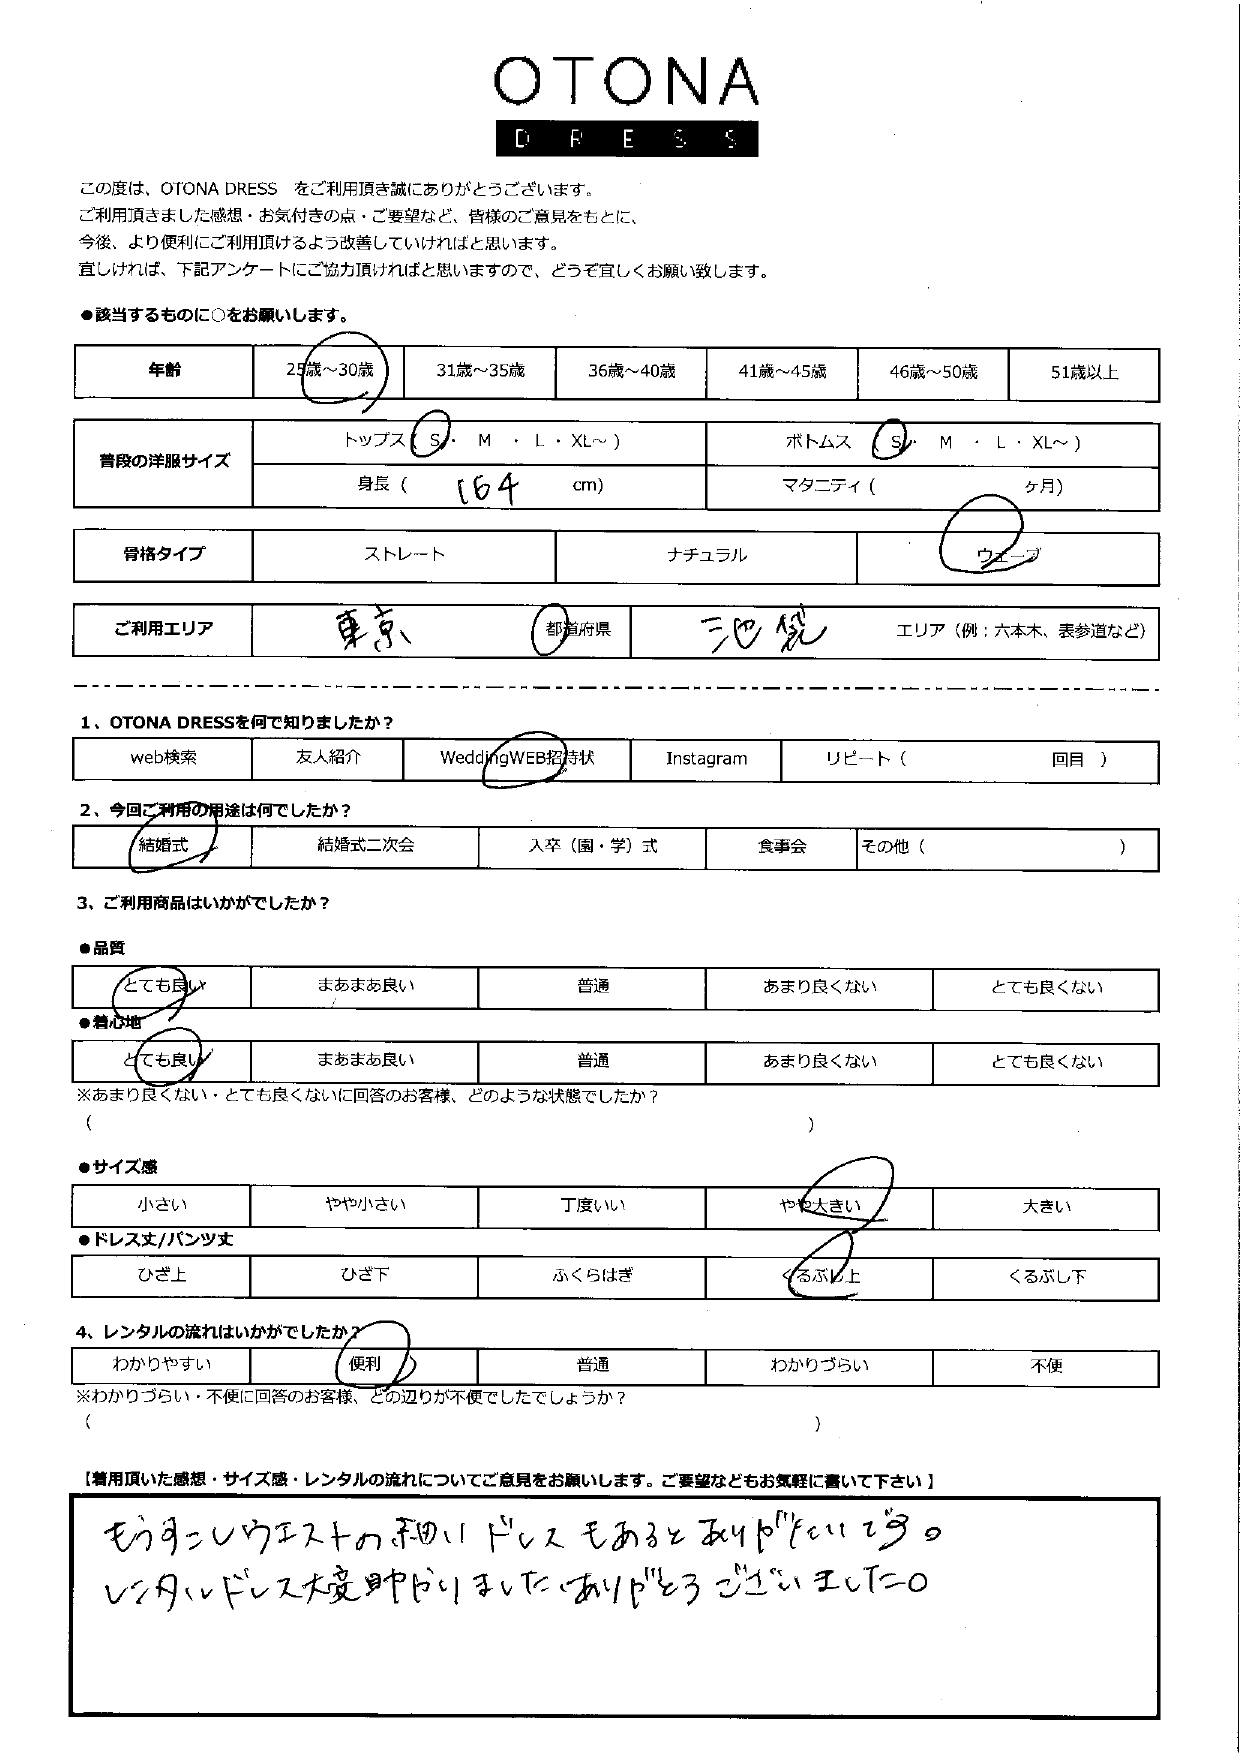 OTONA
DRESS
この度は、OTONA DRESS　をご利用頂き誠にありがとうございます。
ご利用頂きました感想・お気付きの点・ご要望など、皆様のご意見をもとに、
今後、より便利にご利用頂けるよう改善していければと思います。
宜しければ、下記アンケートにご協力頂ければと思いますので、どうぞ宜しくお願い致します。
●該当するものに○をお願いします。
年齢 25歳～30歳 31歳～35歳 36歳～40歳 41歳～45歳 46歳～50歳 51歳以上
普段の洋服サイズ トップス( S ・ M ・ L ・ XL～ ) ボトムス ( S ・ M ・ L ・ XL～ )
身長 ( 164 cm) マタニティ ( ヶ月)
骨格タイプ ストレート ナチュラル ウェーブ
ご利用エリア 東京 都道府県 池袋 エリア（例：六本木、表参道など）
1、OTONA DRESSを何で知りましたか？
web検索 友人紹介 WeddingWEB招待状 Instagram リピート（ 回目 ）
2、今回ご利用の用途は何でしたか？
結婚式 結婚式二次会 入卒（園・学）式 食事会 その他（ ）
3、ご利用商品はいかがでしたか？
●品質
とても良い まあまあ良い 普通 あまり良くない とても良くない
●着心地
とても良い まあまあ良い 普通 あまり良くない とても良くない
※あまり良くない・とても良くないに回答のお客様、どのような状態でしたか？
（ ）
●サイズ感
小さい やや小さい 丁度いい やや大きい 大きい
●ドレス丈/パンツ丈
ひざ上 ひざ下 ふくらはぎ くるぶし上 くるぶし下
4、レンタルの流れはいかがでしたか？
わかりやすい 便利 普通 わかりづらい 不便
※わかりづらい・不便に回答のお客様、どの辺りが不便でしたでしょうか？
（ ）
【着用頂いた感想・サイズ感・レンタルの流れについてご意見をお願いします。ご要望などもお気軽に書いて下さい】
もう少しウエストの細いドレスもあるとありがたいです。
レンタルドレス大変助かりました、ありがとうございました。